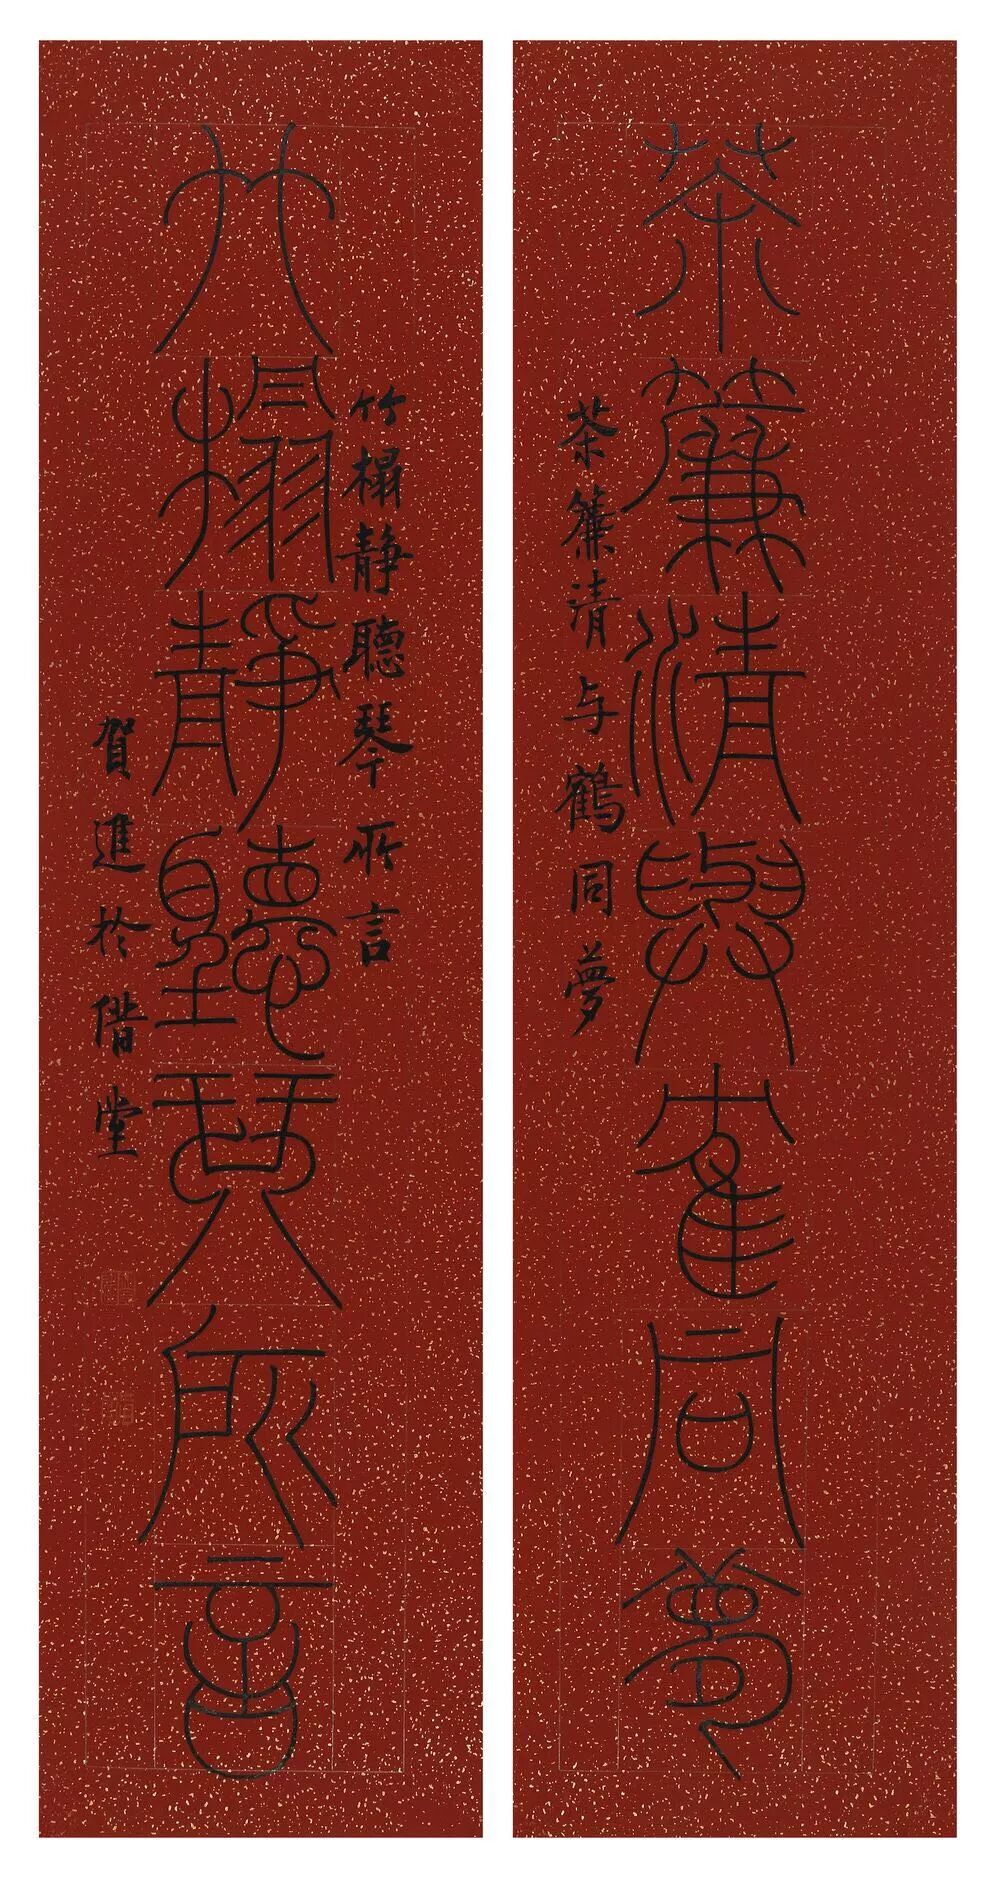 茶簾清與隺同夢
茶簾清与鶴同夢
竹榻靜聽琴所言
竹榻静聽琴所言
賀進於偕堂